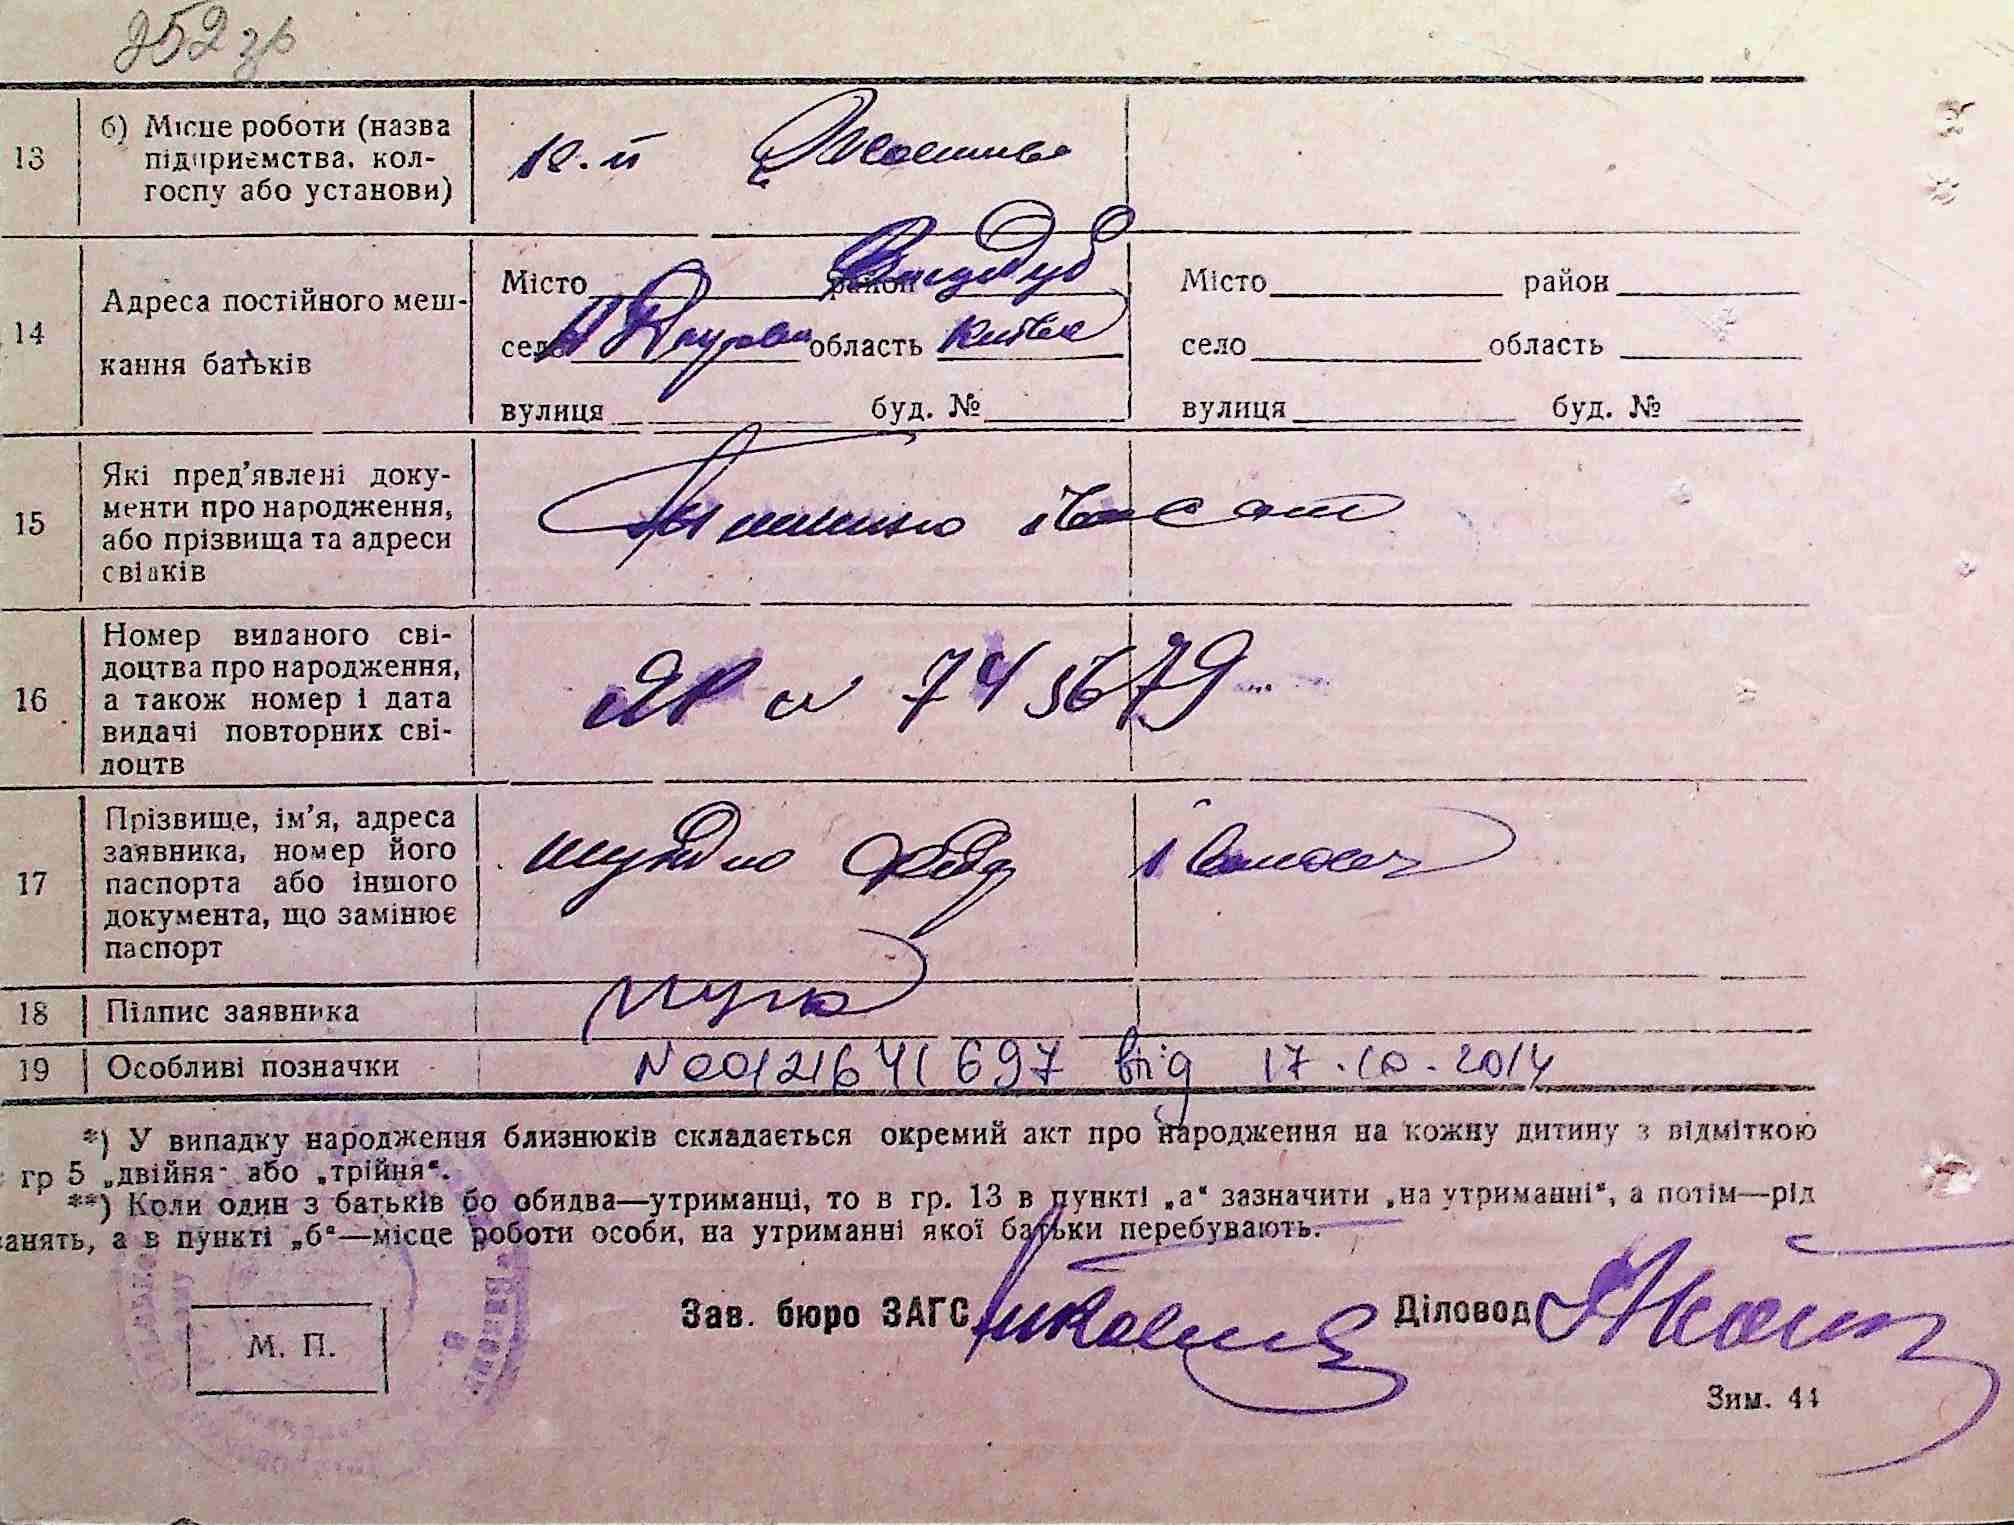 252 зв
13
б) Місце роботи (назва
підприємства, кол-
госпу або установи)
14
Адреса постійного меш-
кання батьків
Місто район
село область Київська
вулиця буд. №
Місто район
село область
вулиця буд. №
15
Які пред'явлені доку-
менти про народження,
або прізвища та адреси
свідків
16
Номер виданого сві-
доцтва про народження,
а також номер і дата
видачі повторних сві-
доцтв
ЯР № 745679
17
Прізвище, ім'я, адреса
заявника, номер його
паспорта або іншого
документа, що замінює
паспорт
Іванович
18
Підпис заявника
19
Особливі позначки
N00121641697 від 17.10.2014
*) У випадку народження близнюків складається окремий акт про народження на кожну дитину з відміткою
гр 5 „двійня" або „трійня".
**) Коли один з батьків бо обидва—утриманці, то в гр. 13 в пункті „а" зазначити „на утриманні", а потім—рід
анять, а в пункті „б"—місце роботи особи, на утриманні якої батьки перебувають.
М. П.
Зав. бюро ЗАГС
Діловод
Зим. 44